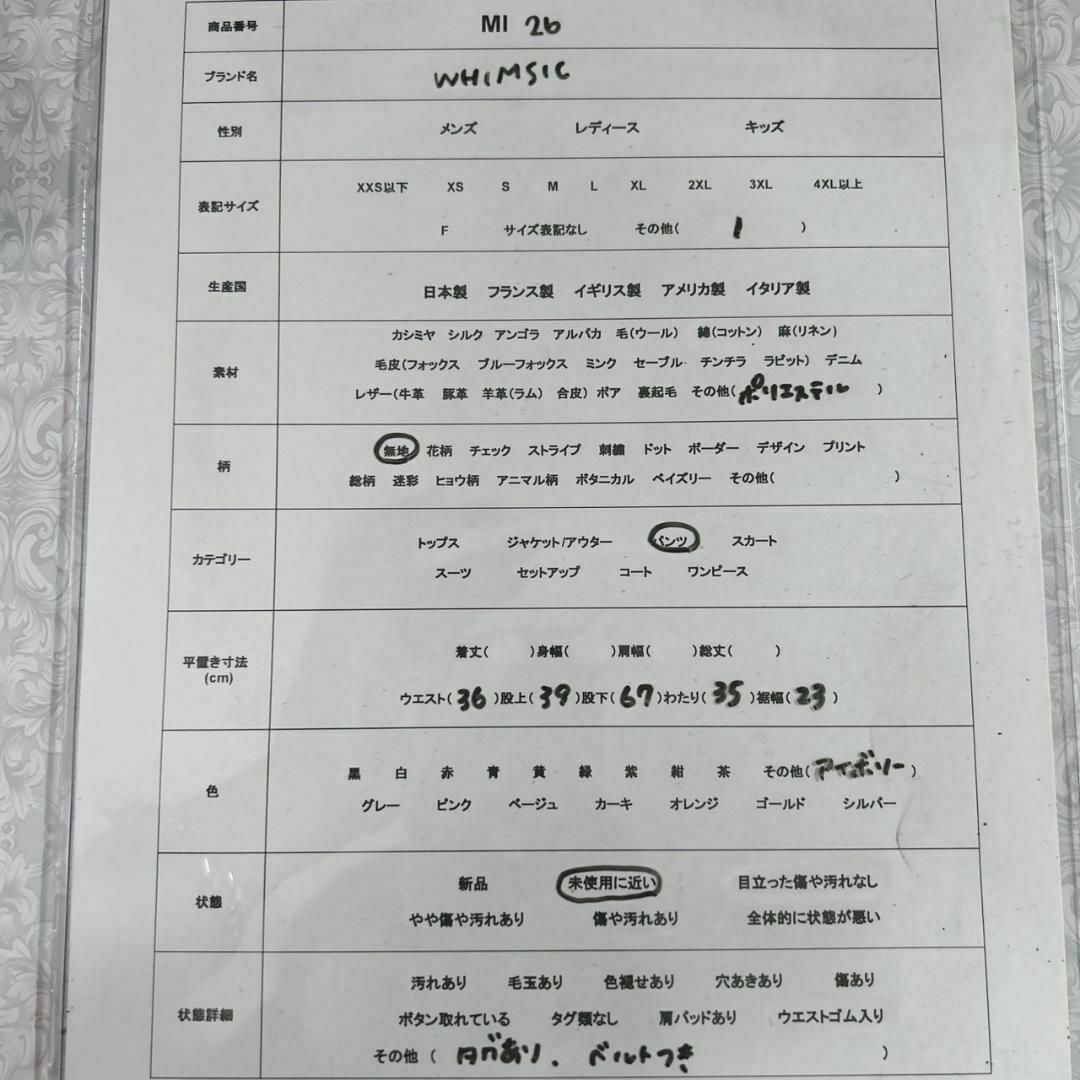 商品番号 MI 26
ブランド名 WHIMSIC
性別 メンズ レディース キッズ
表記サイズ
XXS以下 XS S M L XL 2XL 3XL 4XL以上
F サイズ表記なし その他( 1 )
生産国 日本製 フランス製 イギリス製 アメリカ製 イタリア製
素材
カシミヤ シルク アンゴラ アルパカ 毛(ウール) 綿(コットン) 麻(リネン)
毛皮(フォックス ブルーフォックス ミンク セーブル チンチラ ラビット) デニム
レザー(牛革 豚革 羊革(ラム) 合皮) ボア 裏起毛 その他(ポリエステル )
柄
無地 花柄 チェック ストライプ 刺繍 ドット ボーダー デザイン プリント
総柄 迷彩 ヒョウ柄 アニマル柄 ボタニカル ペイズリー その他( )
カテゴリー
トップス ジャケット/アウター パンツ スカート
スーツ セットアップ コート ワンピース
平置き寸法
(cm)
着丈( )身幅( )肩幅( )総丈( )
ウエスト(36)股上(39)股下(67)わたり(35)裾幅(23)
色
黒 白 赤 青 黄 緑 紫 紺 茶 その他(アイボリー)
グレー ピンク ベージュ カーキ オレンジ ゴールド シルバー
状態
新品 未使用に近い 目立った傷や汚れなし
やや傷や汚れあり 傷や汚れあり 全体的に状態が悪い
状態詳細
汚れあり 毛玉あり 色褪せあり 穴あきあり 傷あり
ボタン取れている タグ類なし 肩パッドあり ウエストゴム入り
その他 ( タグあり、ベルトつき )